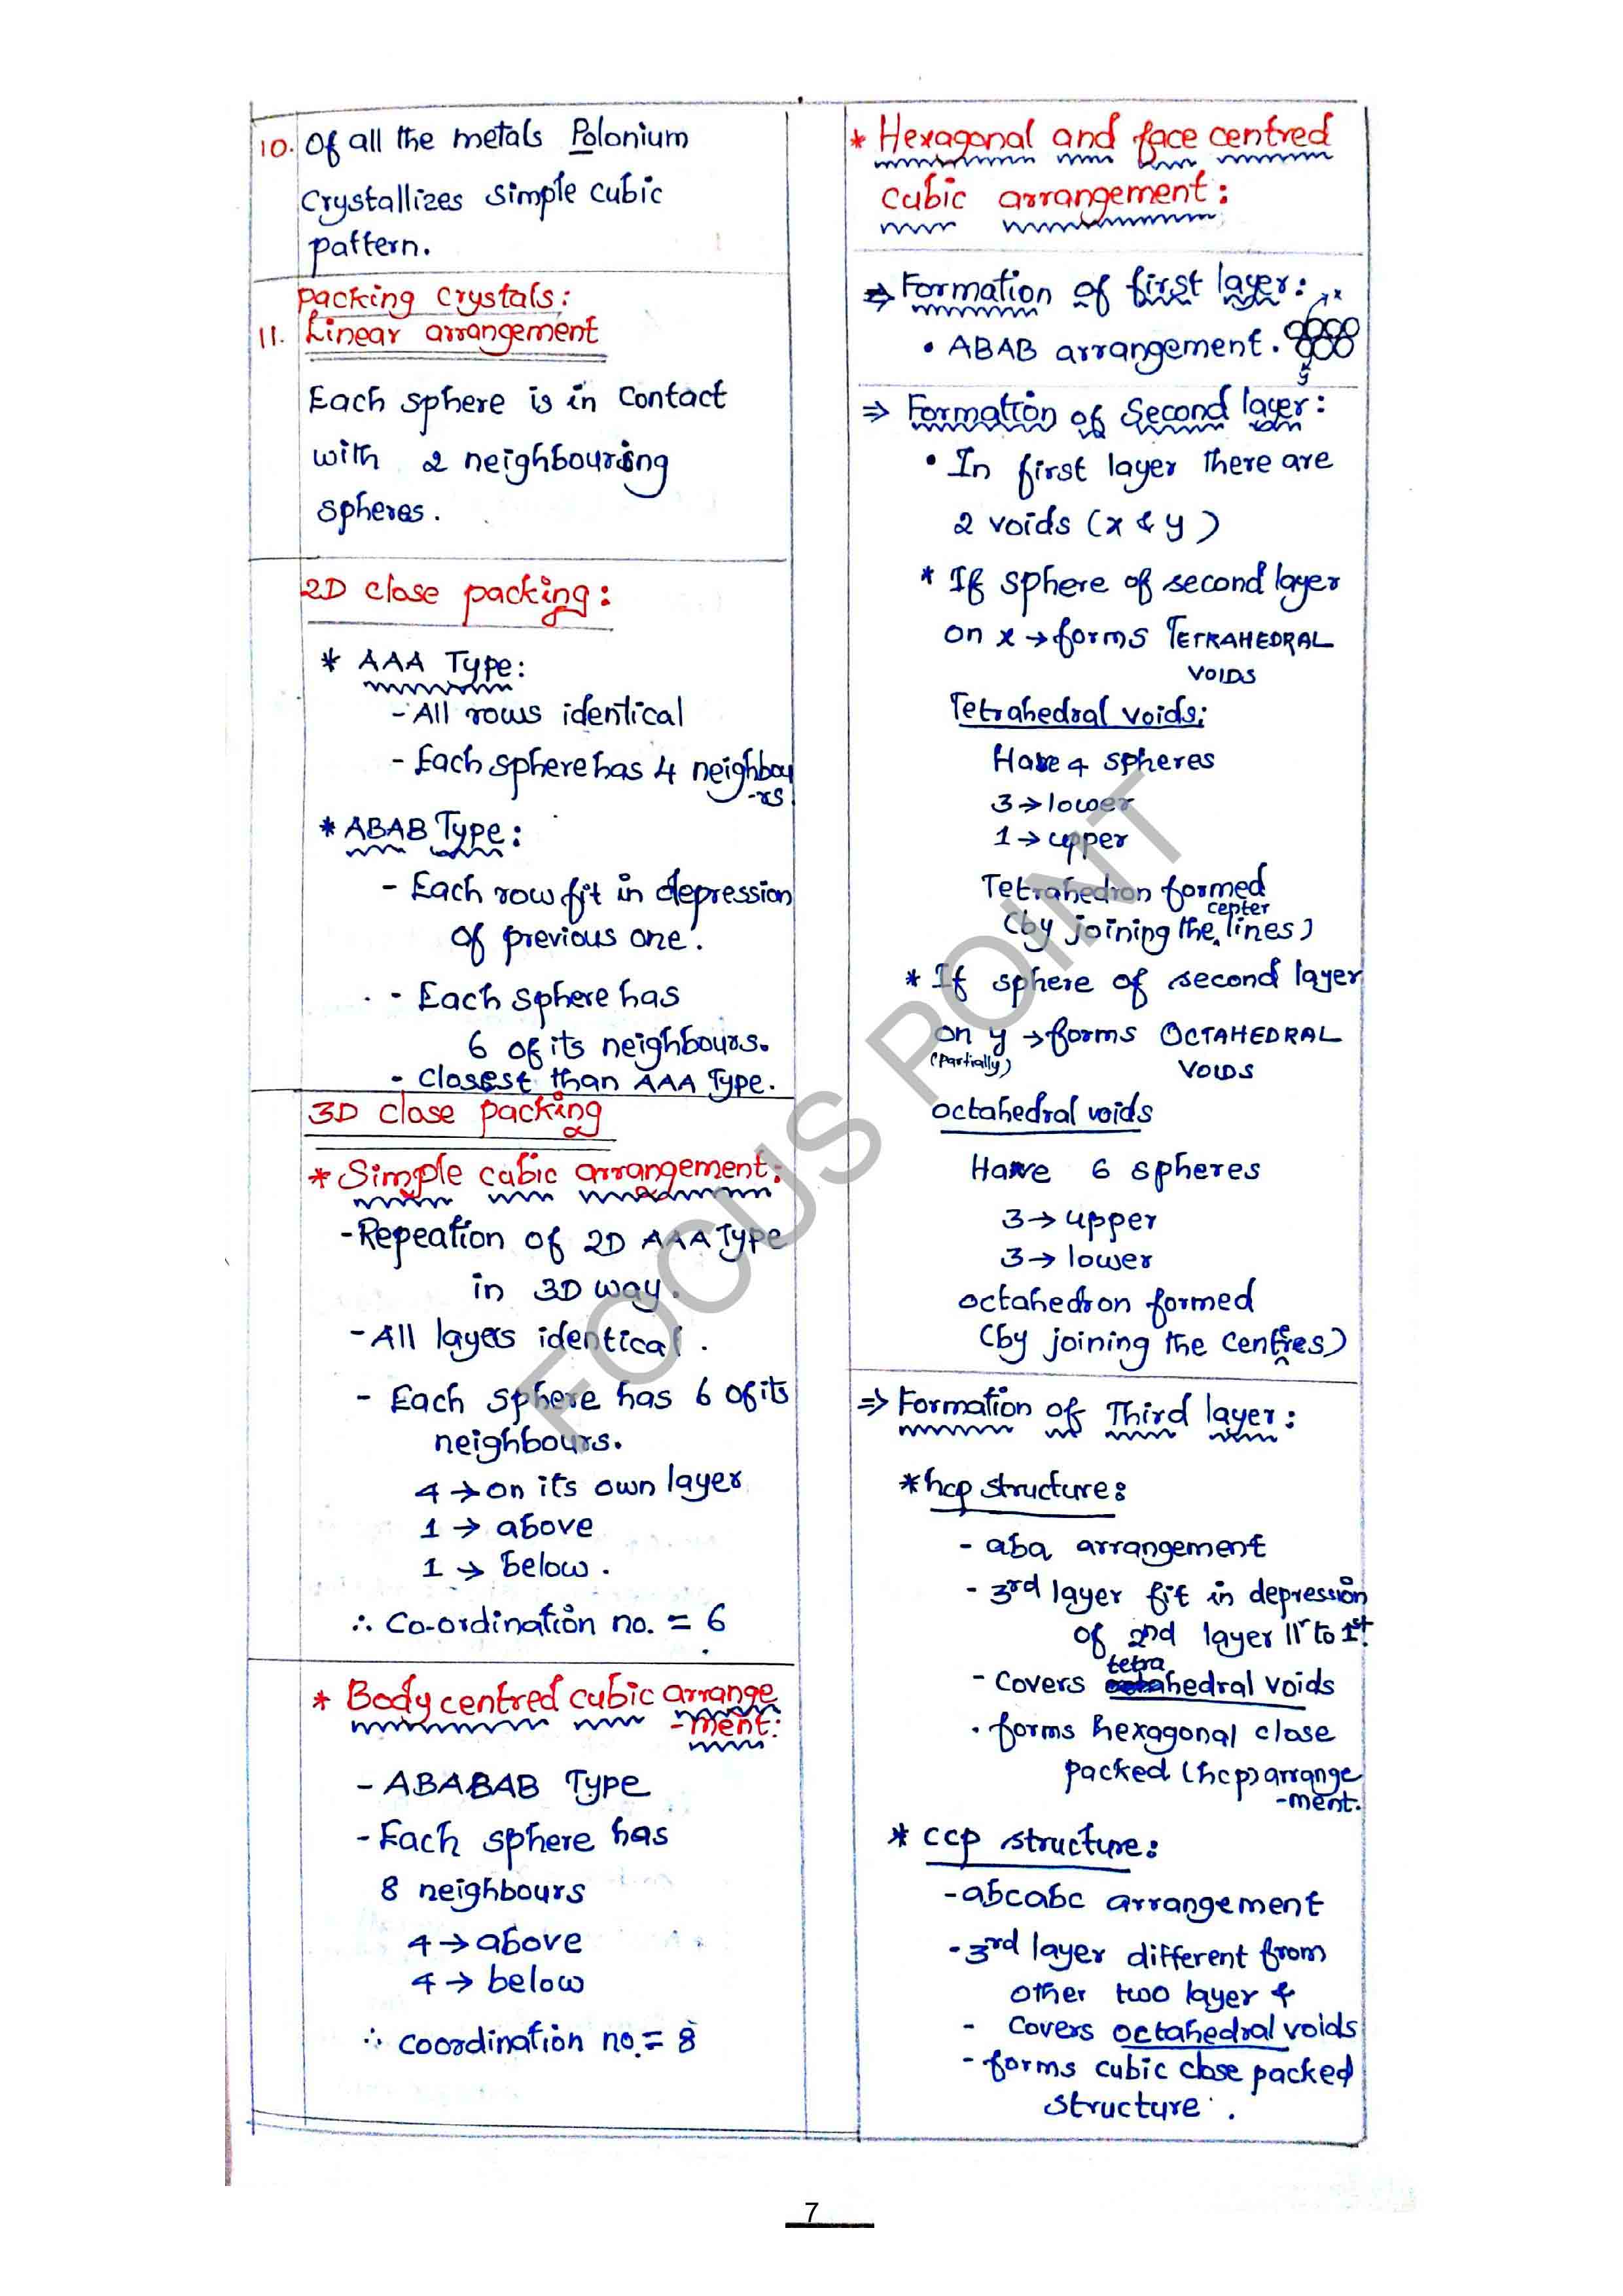 10. Of all the metals Polonium
Crystallizes simple cubic
pattern.
packing crystals:
11. Linear arrangement
Each sphere is in contact
with 2 neighbouring
spheres.
2D close packing:
* AAA Type:
- All rows identical
- Each sphere has 4 neighbou
-rs
* ABAB Type:
- Each row fit in depression
of previous one.
- Each sphere has
6 of its neighbours.
- closest than AAA Type.
3D close packing
* Simple cubic arrangement:
- Repeation of 2D AAA Type
in 3D way.
- All layers identical.
- Each sphere has 6 of its
neighbours.
4 → on its own layer
1 → above
1 → below.
∴ Co-ordination no. = 6
* Body centred cubic arrange
-ment:
- ABABAB Type
- Each sphere has
8 neighbours
4 → above
4 → below
∴ coordination no. = 8
* Hexagonal and face centred
cubic arrangement:
⇒ Formation of first layer:
x
• ABAB arrangement.
y
⇒ Formation of Second layer:
• In first layer there are
2 voids (x & y)
* If sphere of second layer
on x → forms TETRAHEDRAL
VOIDS
Tetrahedral voids:
Have 4 spheres
3 → lower
1 → upper
Tetrahedron formed
center
(by joining the lines)
* If sphere of second layer
on y → forms OCTAHEDRAL
(partially)
VOIDS
octahedral voids
Have 6 spheres
3 → upper
3 → lower
octahedron formed
(by joining the centres)
⇒ Formation of Third layer:
* hcp structure:
- aba arrangement
- 3rd layer fit in depression
of 2nd layer 11r to 1st.
tetra
- Covers hedral voids
· forms hexagonal close
packed (hcp) arrange
-ment.
* ccp structure:
- abcabc arrangement
- 3rd layer different from
other two layer &
- Covers octahedral voids
- forms cubic close packed
structure.
FOCUS POINT
7